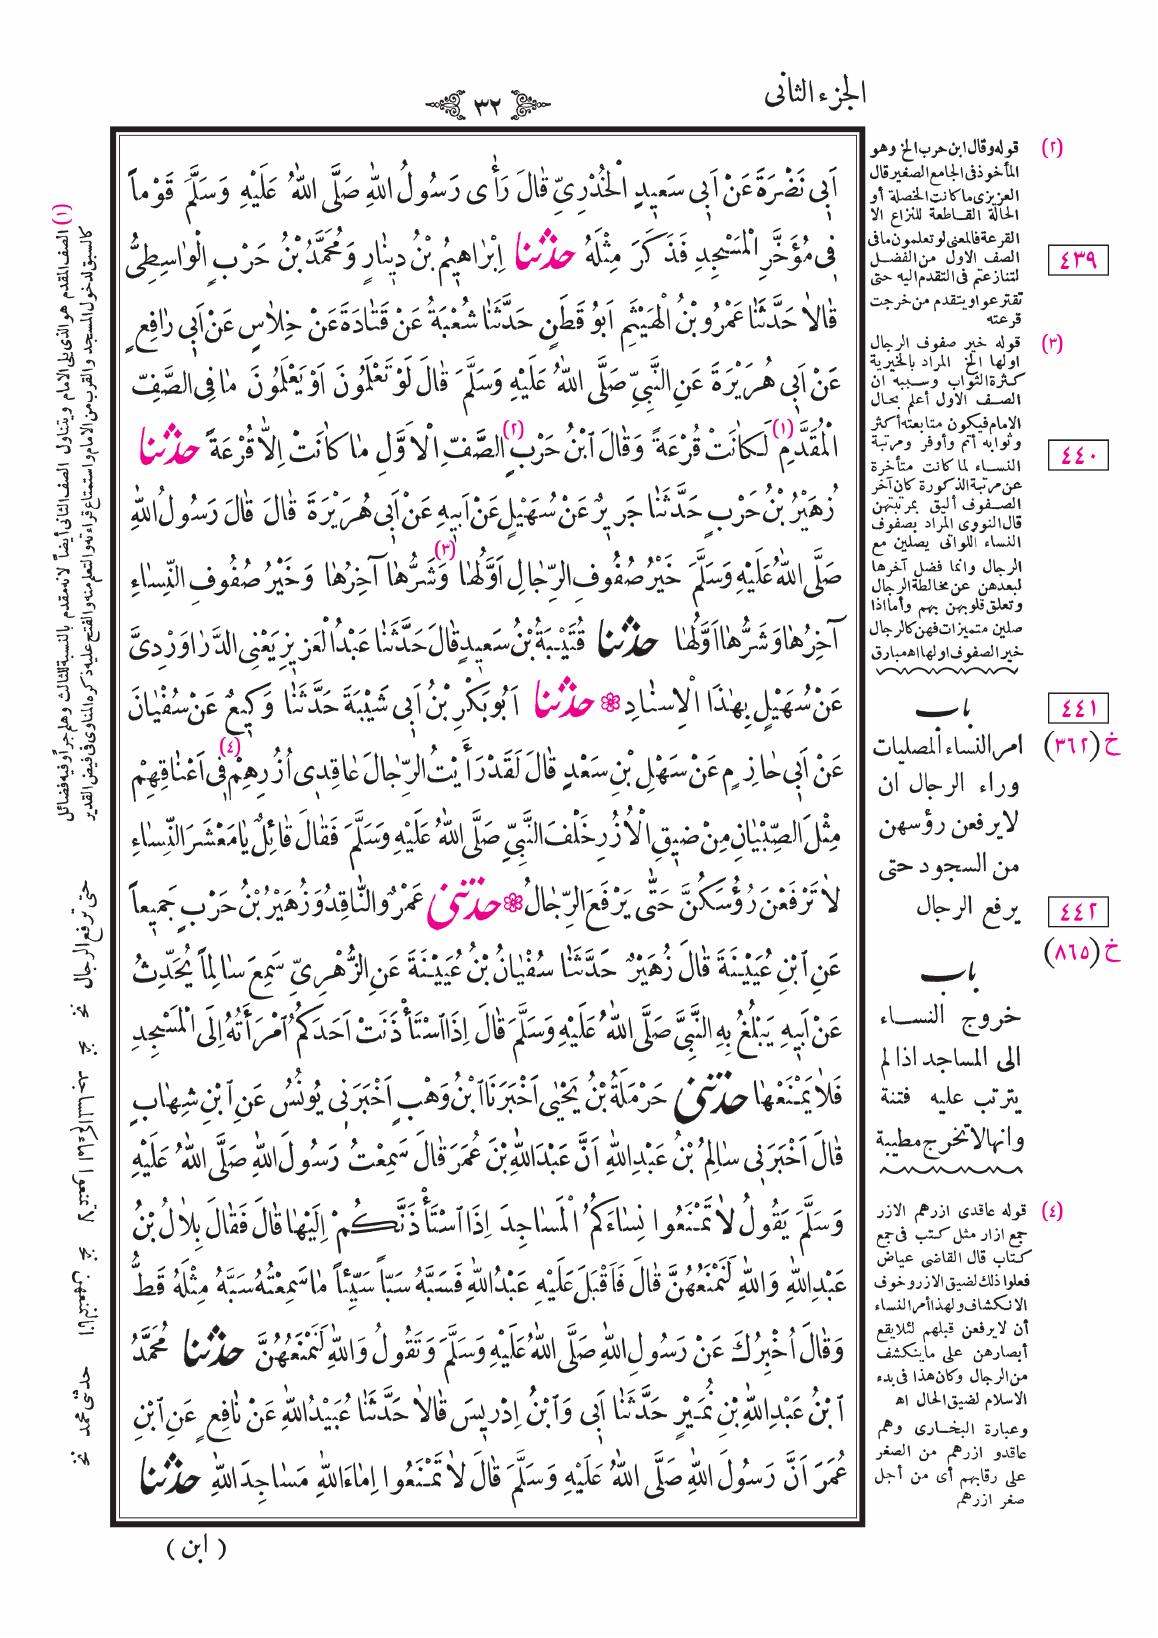 الجزء الثانى
٣٢
اَبِي نَضْرَةَ عَنْ اَبِي سَعِيدٍ الْخُدْرِيِّ قَالَ رَأٰى رَسُولُ اللهِ صَلَّى اللهُ عَلَيْهِ وَسَلَّمَ قَوْماً
فِي مُؤَخَّرِ الْمَسْجِدِ فَذَكَرَ مِثْلَهُ حَدَّثَنَا اِبْرَاهِيمُ بْنُ دِينَارٍ وَمُحَمَّدُ بْنُ حَرْبٍ الْوَاسِطِيُّ
قَالاَ حَدَّثَنَا عَمْرُو بْنُ الْهَيْثَمِ اَبُو قَطَنٍ حَدَّثَنَا شُعْبَةُ عَنْ قَتَادَةَ عَنْ خِلاَسٍ عَنْ اَبِي رَافِعٍ
عَنْ اَبِي هُرَيْرَةَ عَنِ النَّبِيِّ صَلَّى اللهُ عَلَيْهِ وَسَلَّمَ قَالَ لَوْ تَعْلَمُونَ اَوْ يَعْلَمُونَ مَا فِي الصَّفِّ
الْمُقَدَّمِ (١) لَكَانَتْ قُرْعَةً وَقَالَ ابْنُ حَرْبٍ (٢) الصَّفِّ الْاَوَّلِ مَا كَانَتْ اِلاَّ قُرْعَةً حَدَّثَنَا
زُهَيْرُ بْنُ حَرْبٍ حَدَّثَنَا جَرِيرٌ عَنْ سُهَيْلٍ عَنْ اَبِيهِ عَنْ اَبِي هُرَيْرَةَ قَالَ قَالَ رَسُولُ اللهِ
صَلَّى اللهُ عَلَيْهِ وَسَلَّمَ خَيْرُ صُفُوفِ الرِّجَالِ اَوَّلُهَا (٣) وَشَرُّهَا آخِرُهَا وَخَيْرُ صُفُوفِ النِّسَاءِ
آخِرُهَا وَشَرُّهَا اَوَّلُهَا حَدَّثَنَا قُتَيْبَةُ بْنُ سَعِيدٍ قَالَ حَدَّثَنَا عَبْدُ الْعَزِيزِ يَعْنِي الدَّرَاوَرْدِيَّ
عَنْ سُهَيْلٍ بِهٰذَا الْاِسْنَادِ حَدَّثَنَا اَبُو بَكْرِ بْنُ اَبِي شَيْبَةَ حَدَّثَنَا وَكِيعٌ عَنْ سُفْيَانَ
عَنْ اَبِي حَازِمٍ عَنْ سَهْلِ بْنِ سَعْدٍ قَالَ لَقَدْ رَأَيْتُ الرِّجَالَ عَاقِدِي اُزُرِهِمْ (٤) فِي اَعْنَاقِهِمْ
مِثْلَ الصِّبْيَانِ مِنْ ضِيقِ الْاُزُرِ خَلْفَ النَّبِيِّ صَلَّى اللهُ عَلَيْهِ وَسَلَّمَ فَقَالَ قَائِلٌ يَا مَعْشَرَ النِّسَاءِ
لاَ تَرْفَعْنَ رُؤُسَكُنَّ حَتّٰى يَرْفَعَ الرِّجَالُ حَدَّثَنِي عَمْرٌو النَّاقِدُ وَزُهَيْرُ بْنُ حَرْبٍ جَمِيعاً
عَنِ ابْنِ عُيَيْنَةَ قَالَ زُهَيْرٌ حَدَّثَنَا سُفْيَانُ بْنُ عُيَيْنَةَ عَنِ الزُّهْرِيِّ سَمِعَ سَالِماً يُحَدِّثُ
عَنْ اَبِيهِ يَبْلُغُ بِهِ النَّبِيَّ صَلَّى اللهُ عَلَيْهِ وَسَلَّمَ قَالَ اِذَا اسْتَأْذَنَتْ اَحَدَكُمُ امْرَأَتُهُ اِلَى الْمَسْجِدِ
فَلاَ يَمْنَعْهَا حَدَّثَنِي حَرْمَلَةُ بْنُ يَحْيٰى اَخْبَرَنَا ابْنُ وَهْبٍ اَخْبَرَنِي يُونُسُ عَنِ ابْنِ شِهَابٍ
قَالَ اَخْبَرَنِي سَالِمُ بْنُ عَبْدِ اللهِ اَنَّ عَبْدَ اللهِ بْنَ عُمَرَ قَالَ سَمِعْتُ رَسُولَ اللهِ صَلَّى اللهُ عَلَيْهِ
وَسَلَّمَ يَقُولُ لاَ تَمْنَعُوا نِسَاءَكُمُ الْمَسَاجِدَ اِذَا اسْتَأْذَنَّكُمْ اِلَيْهَا قَالَ فَقَالَ بِلاَلُ بْنُ
عَبْدِ اللهِ وَاللهِ لَنَمْنَعُهُنَّ قَالَ فَاَقْبَلَ عَلَيْهِ عَبْدُ اللهِ فَسَبَّهُ سَبّاً سَيِّئاً مَا سَمِعْتُهُ سَبَّهُ مِثْلَهُ قَطُّ
وَقَالَ اُخْبِرُكَ عَنْ رَسُولِ اللهِ صَلَّى اللهُ عَلَيْهِ وَسَلَّمَ وَتَقُولُ وَاللهِ لَنَمْنَعُهُنَّ حَدَّثَنَا مُحَمَّدُ
ابْنُ عَبْدِ اللهِ بْنِ نُمَيْرٍ حَدَّثَنَا اَبِي وَابْنُ اِدْرِيسَ قَالاَ حَدَّثَنَا عُبَيْدُ اللهِ عَنْ نَافِعٍ عَنِ ابْنِ
عُمَرَ اَنَّ رَسُولَ اللهِ صَلَّى اللهُ عَلَيْهِ وَسَلَّمَ قَالَ لاَ تَمْنَعُوا اِمَاءَ اللهِ مَسَاجِدَ اللهِ حَدَّثَنَا
( ابن )
(٢) قوله وقال ابن حرب الخ وهو
المأخوذ فى الجامع الصغير قال
العزيزى ما كانت الخصلة أو
الحالة القاطعة للنزاع الا
القرعة فالمعنى لو تعلمون ما فى
الصف الاول من الفضل
لتنازعتم فى التقدم اليه حتى
تقترعوا ويتقدم من خرجت
قرعته
٤٣٩
(٣) قوله خير صفوف الرجال
اولها الخ المراد بالخيرية
كثرة الثواب وسببه ان
الصف الاول أعلم بحال
الامام فيكون متابعته أكثر
وثوابه أتم وأوفر ومرتبة
النساء لما كانت متأخرة
عن مرتبة الذكورة كان آخر
الصفوف أليق بمرتبتهن
قال النووى المراد بصفوف
النساء اللواتى يصلين مع
الرجال وانما فضل آخرها
لبعدهن عن مخالطة الرجال
وتعلق قلوبهن بهم وأما اذا
صلين متميزات فهن كالرجال
خير الصفوف اولها اه مبارق
٤٤٠
باب
امر النساء المصليات
وراء الرجال ان
لا يرفعن رؤسهن
من السجود حتى
يرفع الرجال
٤٤١
خ (٣٦٢)
٤٤٢
خ (٨٦٥)
باب
خروج النساء
الى المساجد اذا لم
يترتب عليه فتنة
وانها لا تخرج مطيبة
(٤) قوله عاقدى ازرهم الازر
جمع ازار مثل كتب فى جمع
كتاب قال القاضى عياض
فعلوا ذلك لضيق الازر وخوف
الانكشاف ولهذا أمر النساء
أن لا يرفعن قبلهم لئلا يقع
أبصارهن على ما ينكشف
من الرجال وكان هذا فى بدء
الاسلام لضيق الحال اه
وعبارة البخارى وهم
عاقدو ازرهم من الصغر
على رقابهم أى من أجل
صغر ازرهم
(١) الصف المقدم هو الذى يلى الامام ويتناول الصف الثانى أيضاً لانه مقدم بالنسبة للثالث وهلم جراً وفيه فضائل
كالسبق لدخول المسجد والقرب من الامام واستماع قراءته والتعلم منه والفتح عليه ذكره المناوى فى فيض القدير
حتى ترفع الرجال نخ
حدثنى محمد نخ